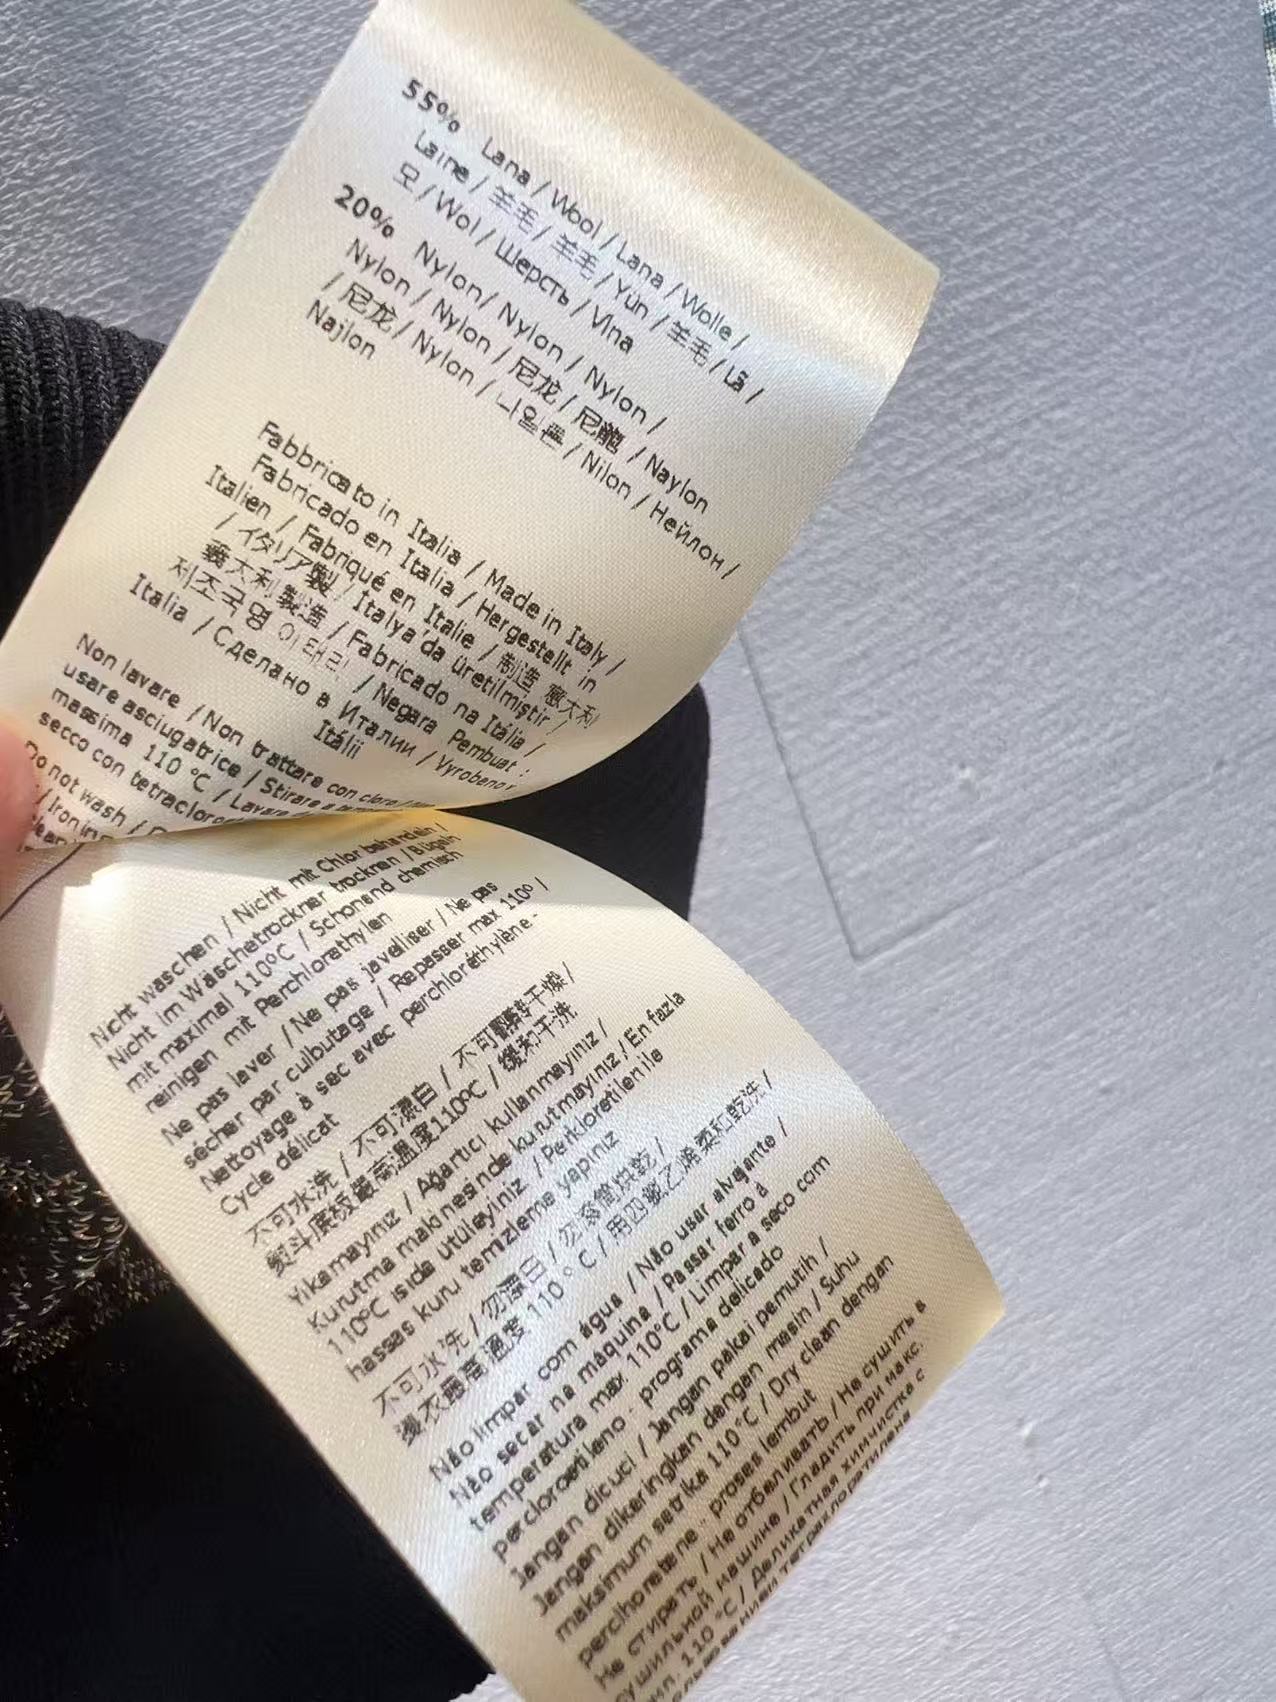 55% Lana / Wool / Lana / Wolle /
Laine / 羊毛 / 羊毛 / Yün / 羊毛 / Lã /
모 / Wol / Шерсть / Vlna
20% Nylon / Nylon / Nylon /
Nylon / Nylon / 尼龙 / 尼龍 / Naylon
/ 尼龙 / Nylon / 나일론 / Nilon / Нейлон /
Najlon
Fabbricato in Italia / Made in Italy /
Fabricado en Italia / Hergestellt in
Italien / Fabriqué en Italie / 制造 意大利
/ イタリア製 / Italya'da üretilmiştir /
義大利 製造 / Fabricado na Itália /
제조국명 이태리 / Negara Pembuat :
Italia / Сделано в Италии / Vyrobeno v
Itálii
Non lavare / Non trattare con cloro /
usare asciugatrice / Stirare a
massima 110 °C / Lavare
secco con
Do not wash /
/ Ironing
clean
Nicht waschen / Nicht mit Chlor behandeln /
Nicht im Wäschetrockner trocknen / Bügeln
mit maximal 110°C / Schonend chemisch
reinigen mit Perchlorathylen
Ne pas laver / Ne pas javelliser / Ne pas
sécher par culbutage / Repasser max 110° /
Nettoyage à sec avec perchloréthylène -
Cycle délicat
不可水洗 / 不可漂白 / 不可翻转干燥 /
熨斗底板最高温度110°C / 缓和干洗
Yıkamayınız / Ağartıcı kullanmayınız /
Kurutma makinesinde kurutmayınız / En fazla
110°C ısıda ütüleyiniz / Perkloretilen ile
hassas kuru temizleme yapınız
不可水洗 / 勿漂白 / 勿滾筒烘乾 /
燙衣最高溫度 110 ° C / 用四氯乙烯柔和乾洗 /
Não limpar com água / Não usar alvejante /
Não secar na máquina / Passar ferro à
temperatura max 110°C / Limpar a seco com
percloroetileno - programa delicado
Jangan dicuci / Jangan pakai pemutih /
Jangan dikeringkan dengan mesin / Suhu
maksimum setrika 110°C / Dry clean dengan
perclhoretene - proses lembut
Не стирать / Не отбеливать / Не сушить в
сушильной машине / Гладить при макс.
110 °C / Деликатная химчистка с